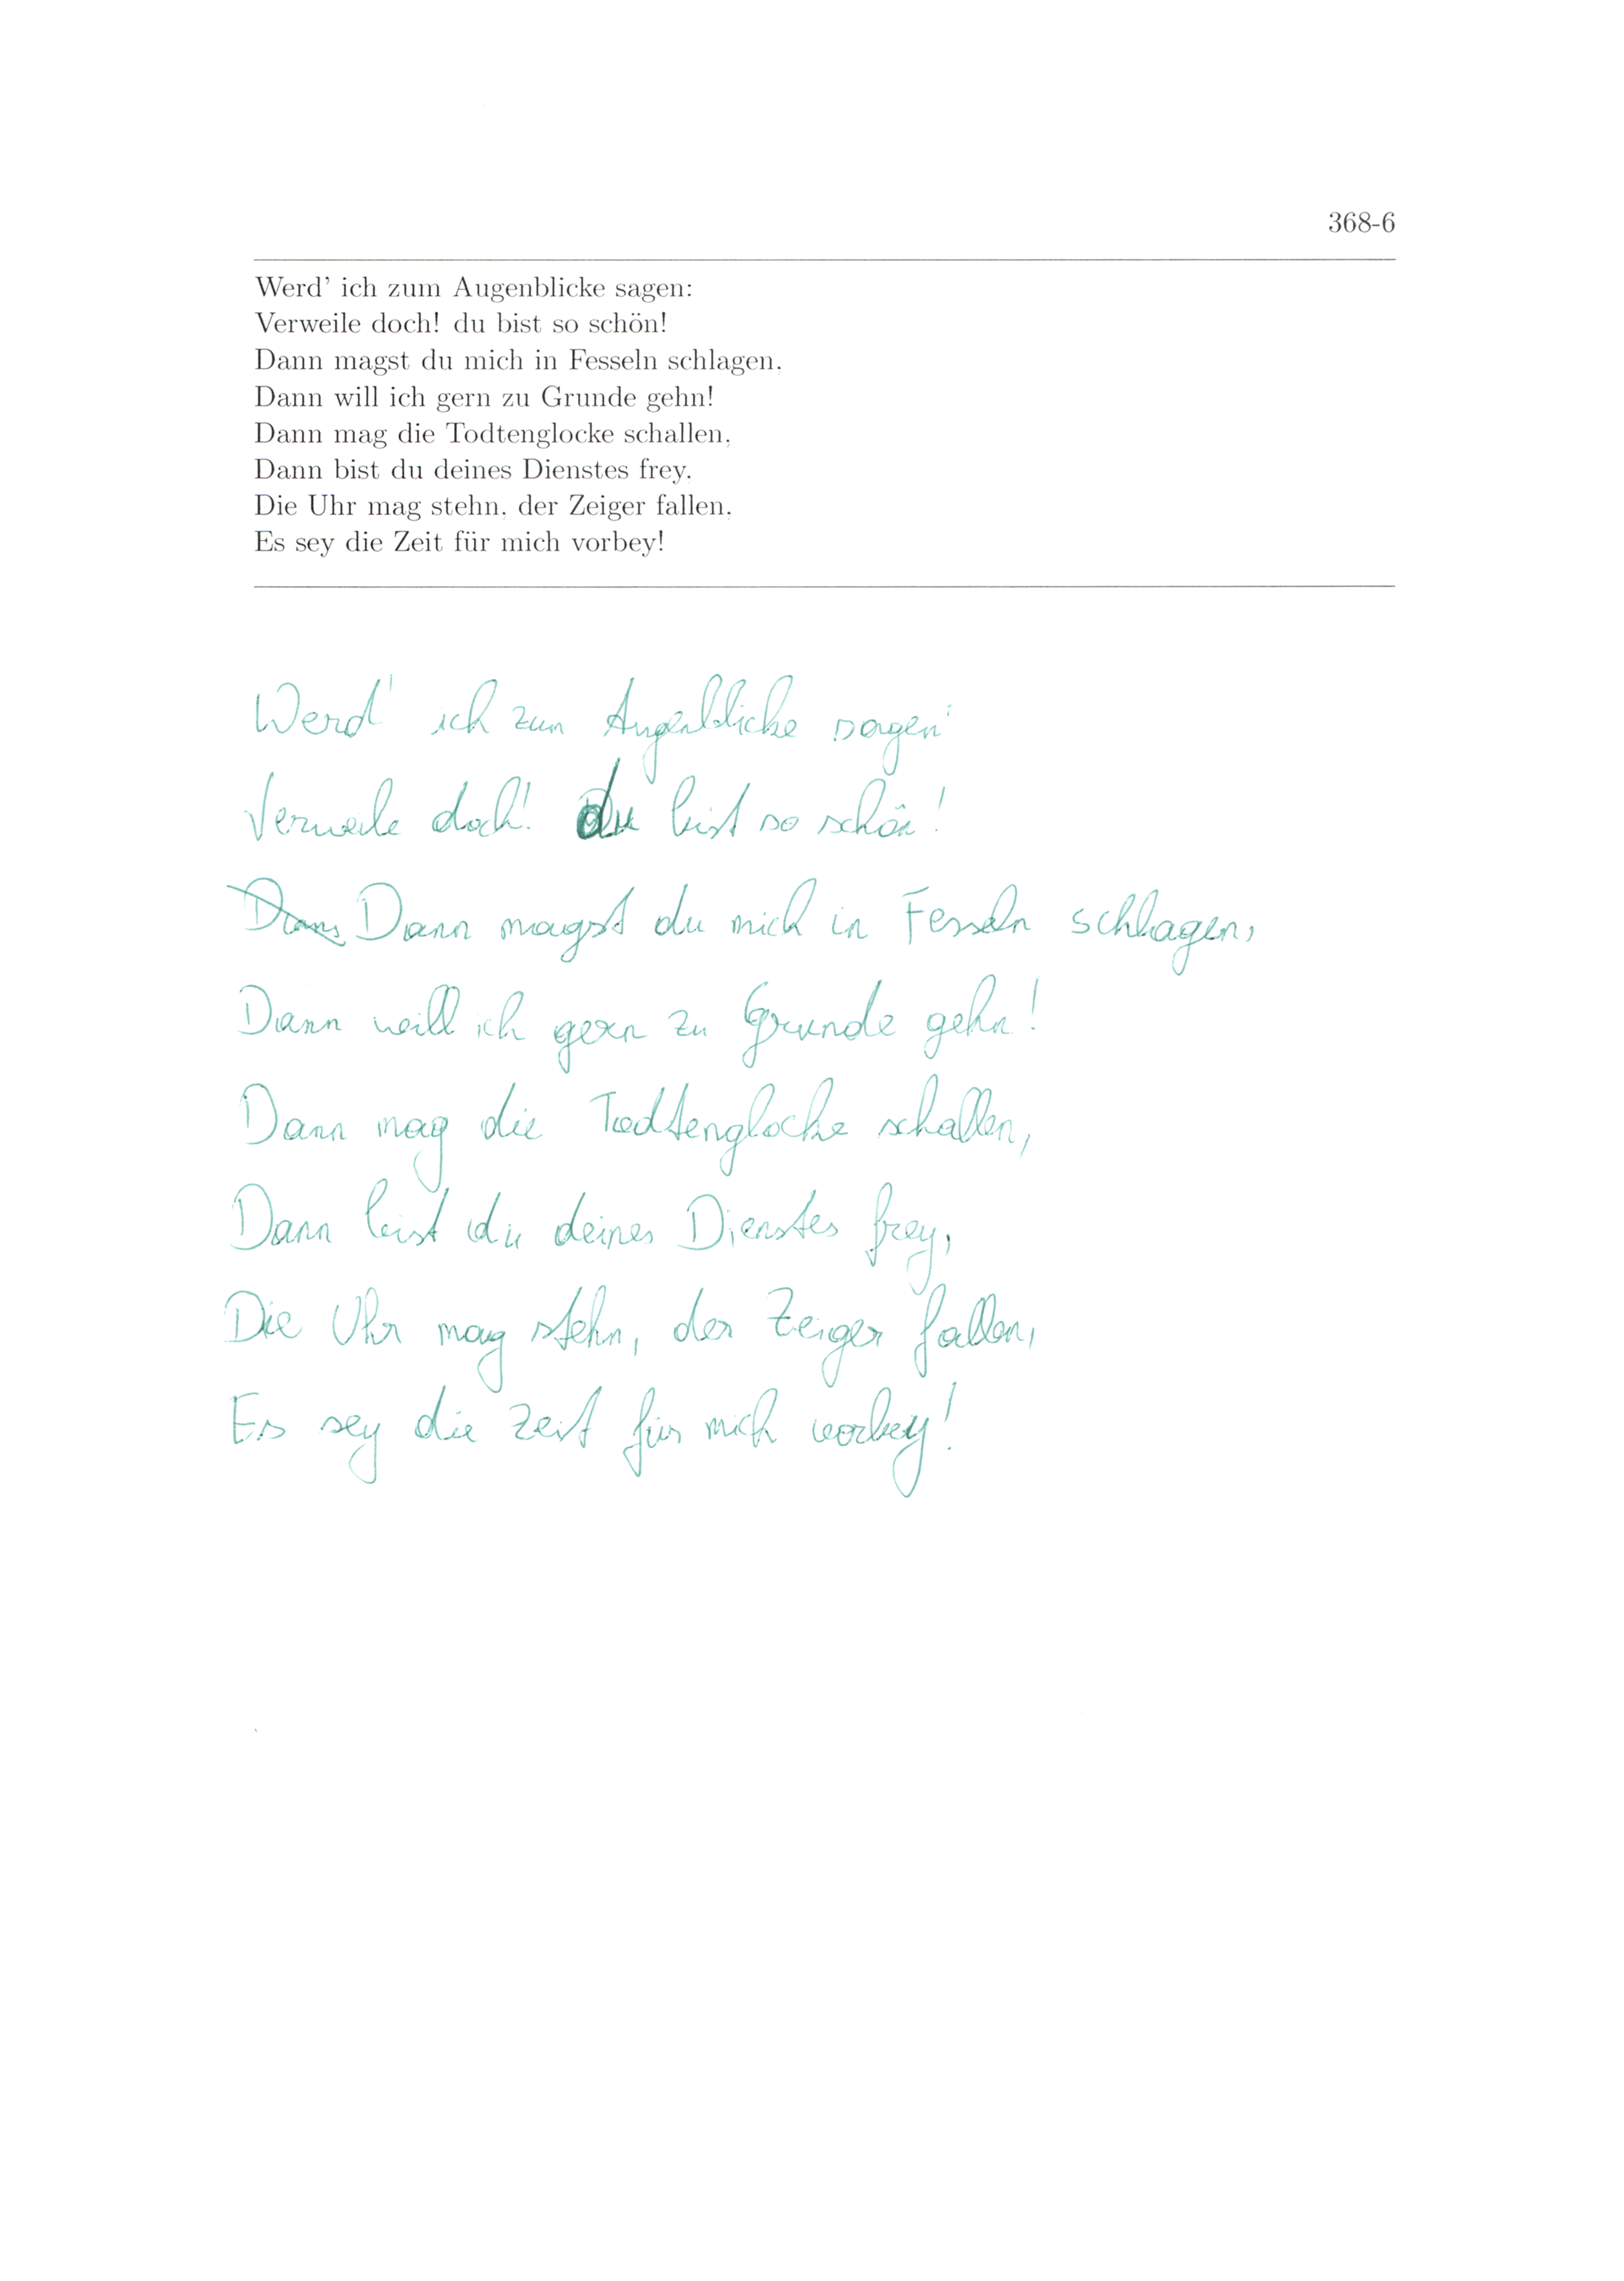 368-6
Werd' ich zum Augenblicke sagen:
Verweile doch! du bist so schön!
Dann magst du mich in Fesseln schlagen,
Dann will ich gern zu Grunde gehn!
Dann mag die Todtenglocke schallen,
Dann bist du deines Dienstes frey,
Die Uhr mag stehn, der Zeiger fallen,
Es sey die Zeit für mich vorbey!
Werd' ich zum Augenblicke sagen:
Verweile doch! du bist so schön!
Dann magst du mich in Fesseln schlagen,
Dann will ich gern zu Grunde gehn!
Dann mag die Todtenglocke schallen,
Dann bist du deines Dienstes frey,
Die Uhr mag stehn, der Zeiger fallen,
Es sey die Zeit für mich vorbey!